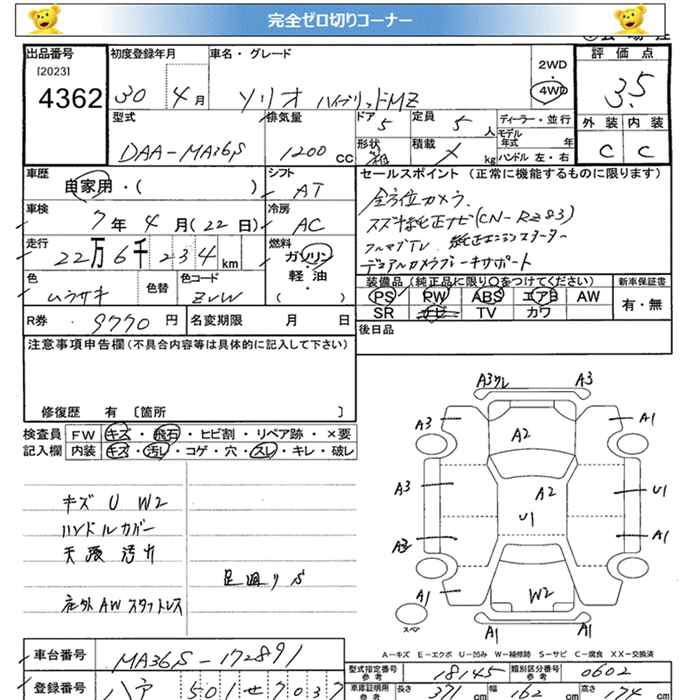 完全ゼロ切りコーナー
出品番号 初度登録年月 車名・グレード 2WD・4WD 評価点
[2023]
4362 30年 4月 ソリオ ハイブリッドMZ 3.5
型式 排気量 ドア 5 定員 5人 ディーラー・並行 外装 内装
DAA-MA36S 1200cc 形状 箱 積載 ✓ kg モデル年式 年 ハンドル 左・右 C C
車歴 自家用・( ) シフト AT
セールスポイント(正常に機能するものに限ります)
車検 7年 4月(22日) 冷房 AC
全方位カメラ
スズキ純正ナビ(CN-RZ83)
フルセグTV 純正エンジンスターター
デュアルカメラブレーキサポート
走行 22万6千234km 燃料 ガソリン・軽・油( )
色 ムラサキ 色替 色コード ZVW
装備品(純正品に限り○をつけてください) 新車保証書
PS PW ABS エアB AW 有・無
SR ナビ TV カワ
R券 9770円 名変期限 月 日
後日品
注意事項申告欄(不具合内容等は具体的に記入して下さい)
修復歴 有〔箇所 〕
検査員記入欄 FW キズ・飛石・ヒビ割・リペア跡・×要
内装 キズ・汚レ・コゲ・穴・スレ・キレ・破レ
キズ U W2
ハンドルカバー
天張汚れ
足廻りS
社外AWスタットレス
A3 ワレ A3
A3 A1
A2
A3 A2 U1
U1
A3 A1
A1 W2 A1
スペア
A1 A1
A-キズ E-エクボ U-凹み W-補修跡 S-サビ C-腐食 XX-交換済
車台番号 MA36S-172891
型式指定番号 参考 18145 類別区分番号 参考 0602
登録番号 501 せ 7037
車庫証明用 参考 長さ 371cm 幅 162cm 高さ 174cm